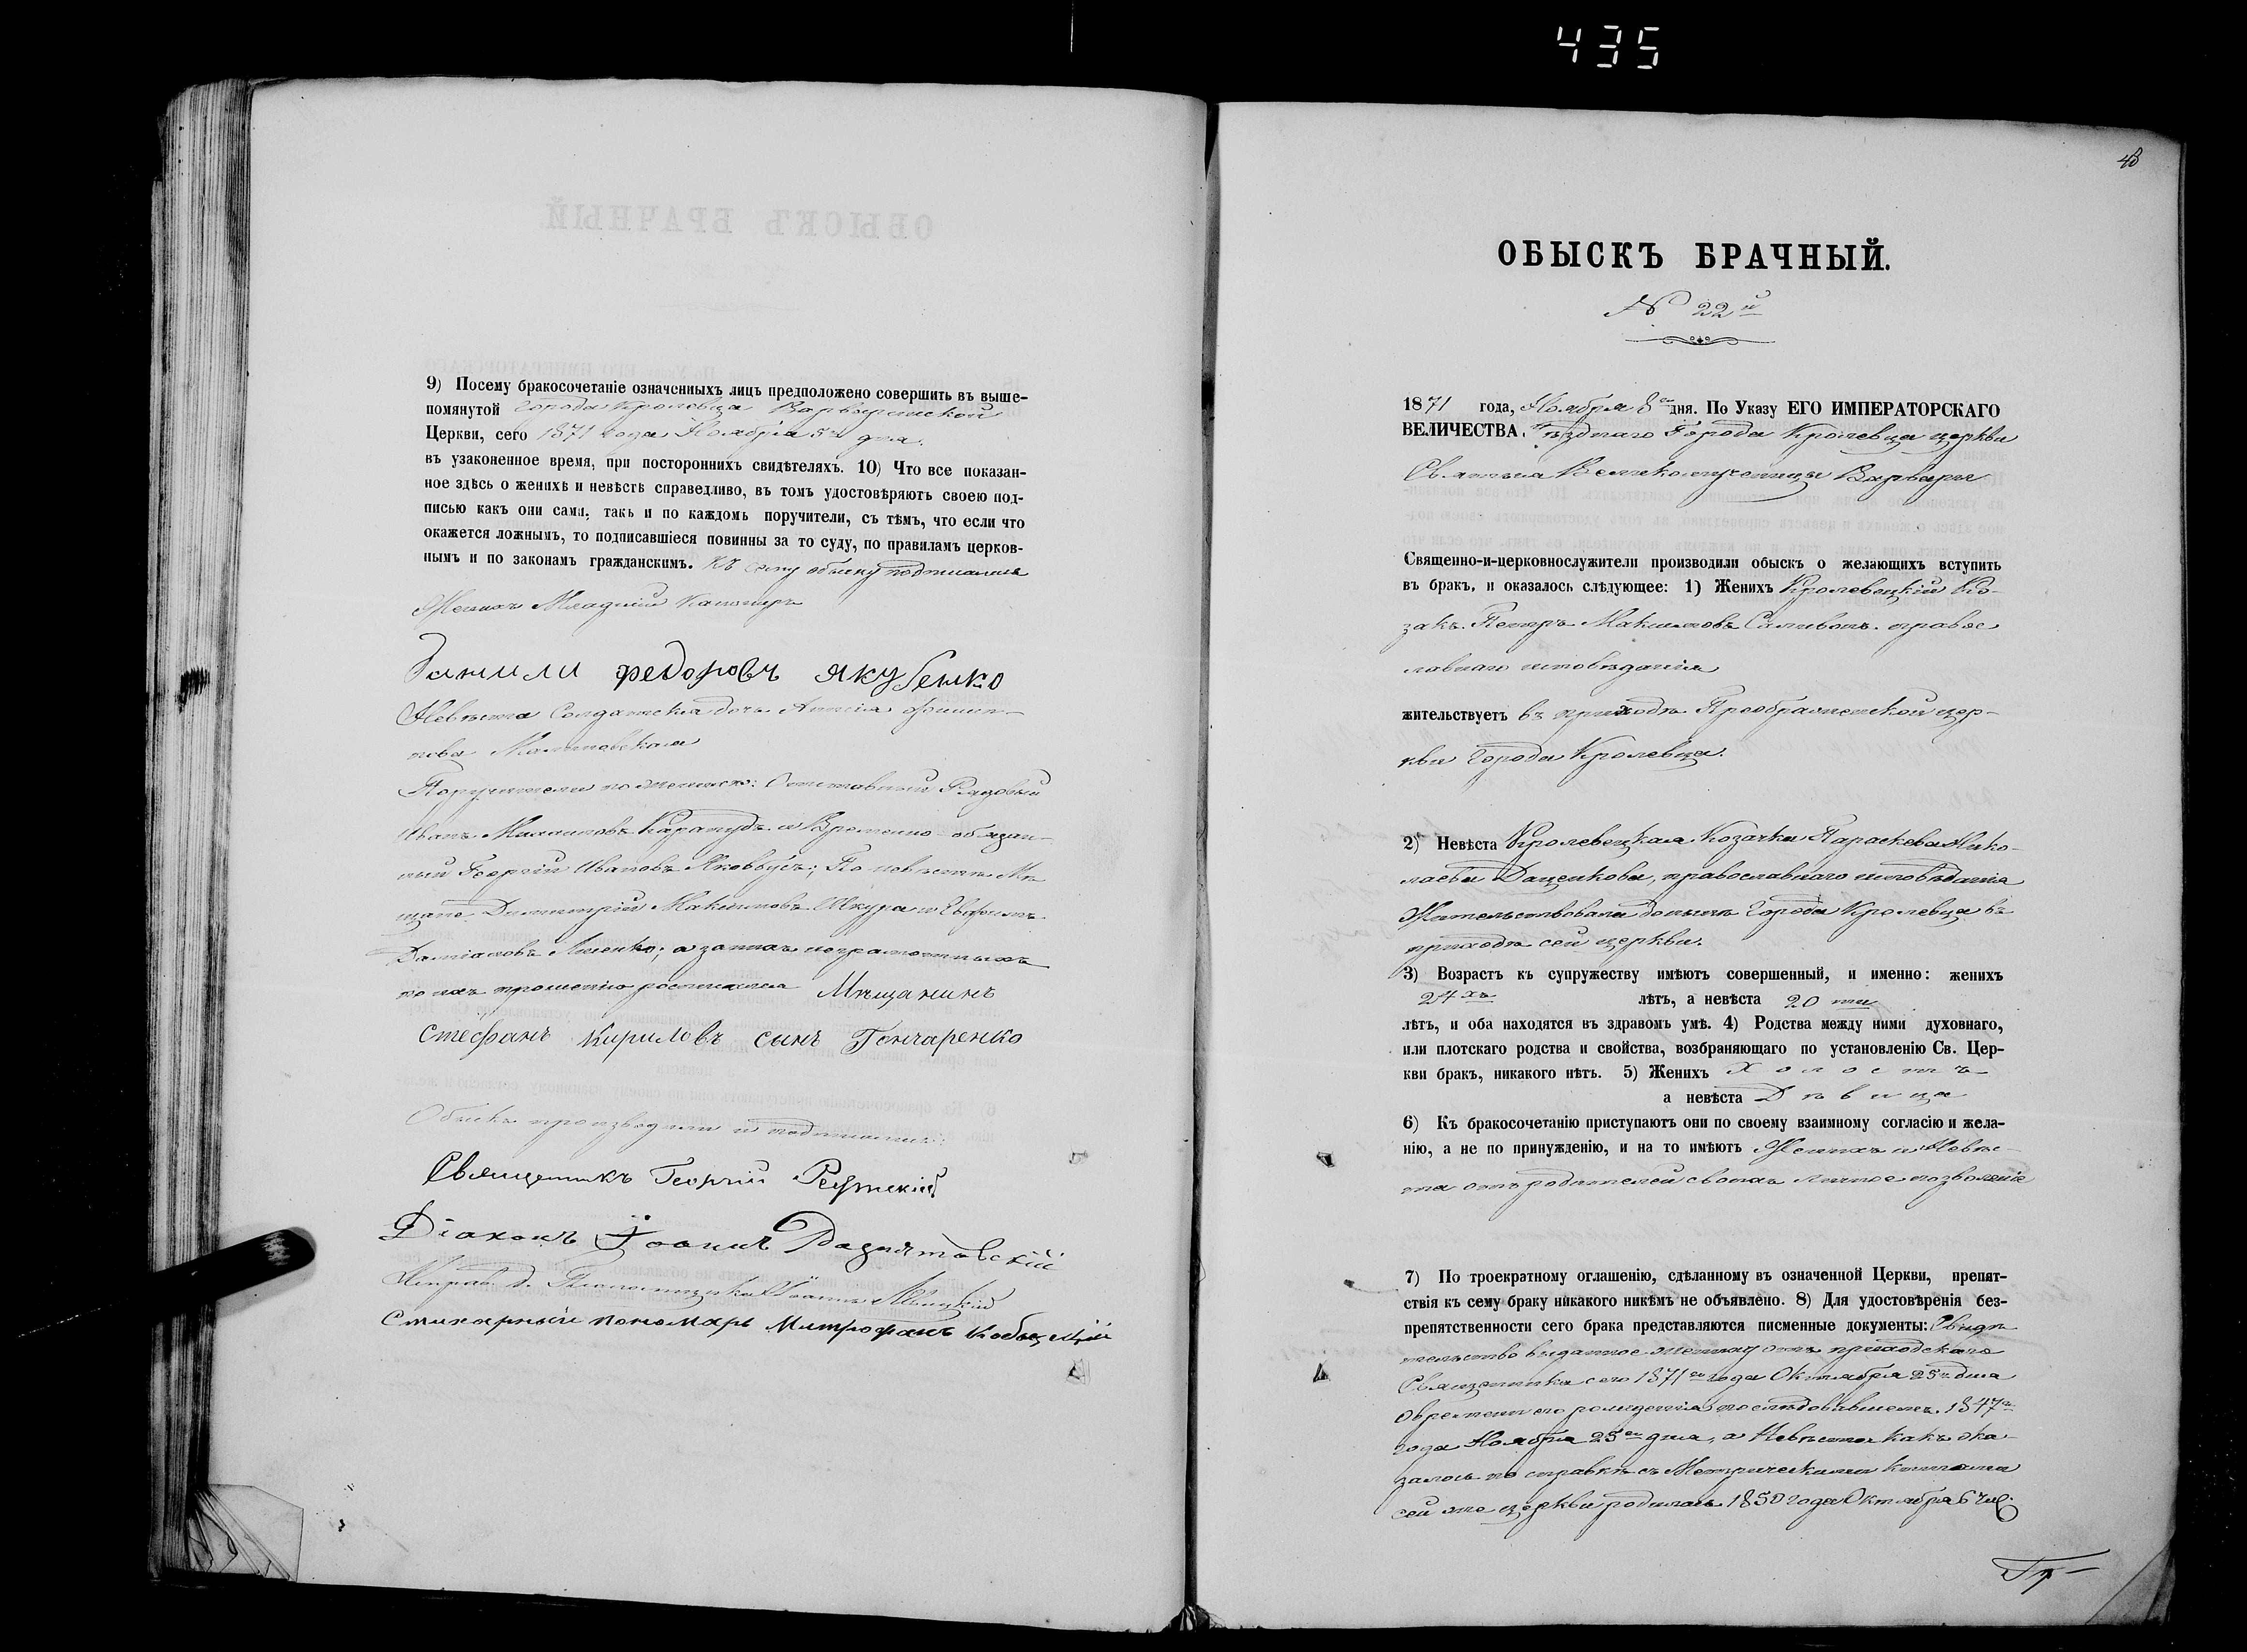 435
9) Посему бракосочетаніе означенныхъ лицъ предположено совершить въ выше-
помянутой города Кролевца Варваринской
Церкви, сего 1871 года Ноября 5го дня.
въ узаконенное время, при постороннихъ свидѣтеляхъ. 10) Что все показан-
ное здѣсь о женихѣ и невѣстѣ справедливо, въ томъ удостовѣряютъ своею под-
писью какъ они сами, такъ и по каждомъ поручители, съ тѣмъ, что если что
окажется ложнымъ, то подписавшіеся повинны за то суду, по правиламъ церков-
нымъ и по законамъ гражданскимъ. Къ сему обыску подписались
Женихъ Младшій Канониръ
Данили федоровъ якубенко
Невѣста Солдатская дочь Филип-
пова Малиновская
Поручители по женихѣ: Отставный Рядовый
Иванъ и Временно-обязан-
ный Георгій Ивановъ Яковбусъ; По невѣстѣ Мѣ
щане Димитрій Максимовъ Шкура и Евфимъ
Даміановъ а за нихъ неграмотныхъ
по ихъ прошенію росписался Мѣщанинъ
Стефанъ Кириловъ сынъ Гончаренко
Обыскъ производили и подписали:
Священникъ Георгій
Діаконъ Іоаннъ
Исправ. д. Псаломщика Іоаннъ
Стихарный пономарь Митрофанъ
ОБЫСКЪ БРАЧНЫЙ.
№ 22й
1871 года, Ноября 8го дня. По Указу ЕГО ИМПЕРАТОРСКАГО
ВЕЛИЧЕСТВА, уѣзднаго Города Кролевца церкви
Святыя Великомученицы Варвары
Священно-и-церковнослужители производили обыскъ о желающихъ вступить
въ бракъ, и оказалось слѣдующее: 1) Женихъ Кролевецкій Ко-
закъ Петръ Максимовъ православ
лавнаго исповѣданія
жительствуетъ въ приходѣ Преображенской цер-
кви Города Кролевца.
2) Невѣста Кролевецкая Козачка Параскева Нико-
лаева Даценкова, православнаго исповѣданія
Жительствовала донынѣ Города Кролевца въ
приходѣ сей церкви.
3) Возрастъ къ супружеству имѣютъ совершенный, и именно: женихъ
24хъ лѣтъ, а невѣста 20ти
лѣтъ, и оба находятся въ здравомъ умѣ. 4) Родства между ними духовнаго,
или плотскаго родства и свойства, возбраняющаго по установленію Св. Цер-
кви бракъ, никакого нѣтъ. 5) Женихъ Холостъ
а невѣста Дѣвица
6) Къ бракосочетанію приступаютъ они по своему взаимному согласію и жела-
нію, а не по принужденію, и на то имѣютъ Женихъ и Невѣс-
та отъ родителей своихъ личное позволеніе
7) По троекратному оглашенію, сдѣланному въ означенной Церкви, препят-
ствія къ сему браку никакого никѣмъ не объявлено. 8) Для удостовѣренія без-
препятственности сего брака представляются писменные документы: Свидѣ
тельство выданное жениху отъ приходскаго
Священника сего 1871го года Октября 25го дня
о времени его рожденія послѣдовавшемъ 1847го
года Ноября 25го дня, а Невѣста какъ ока-
залось по справкѣ съ Метрическими книгами
сей же церкви родилась 1850 года Октября 6 чис.